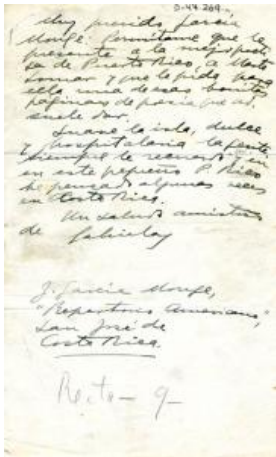 D-47.269
Muy querido García
Monge. Permítame que le
presente a la mejor poeti
sa de Puerto Rico, a
y que le pida para
ella una de esas bonitas
páginas de poesía que Ud.
suele dar.
Suave la isla, dulce
y hospitalaria la gente
siempre le recuerdo y en
en este pequeño P. Rico
he pensado algunas veces
en Costa Rica.
Un saludo amistoso
de Gabriela
J. García Monge,
"Repertorio Americano",
San José de
Costa Rica.